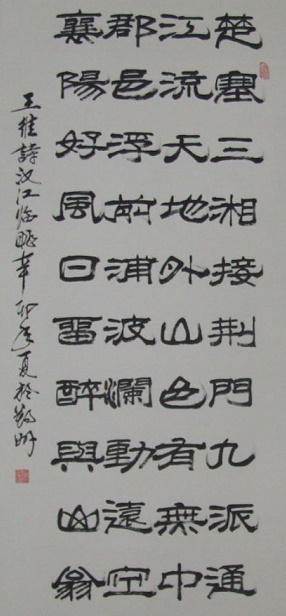 楚塞三湘接荆門九派通
江流天地外山色有無中
郡邑浮前浦波瀾動遠空
襄陽好風日留醉與山翁
王維詩汉江临眺辛卯年夏